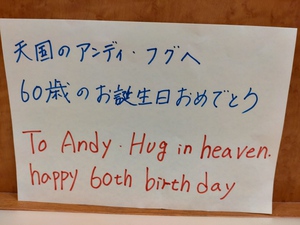 天国のアンディ・フグへ
60歳のお誕生日おめでとう
To Andy・Hug in heaven.
happy 60th birthday